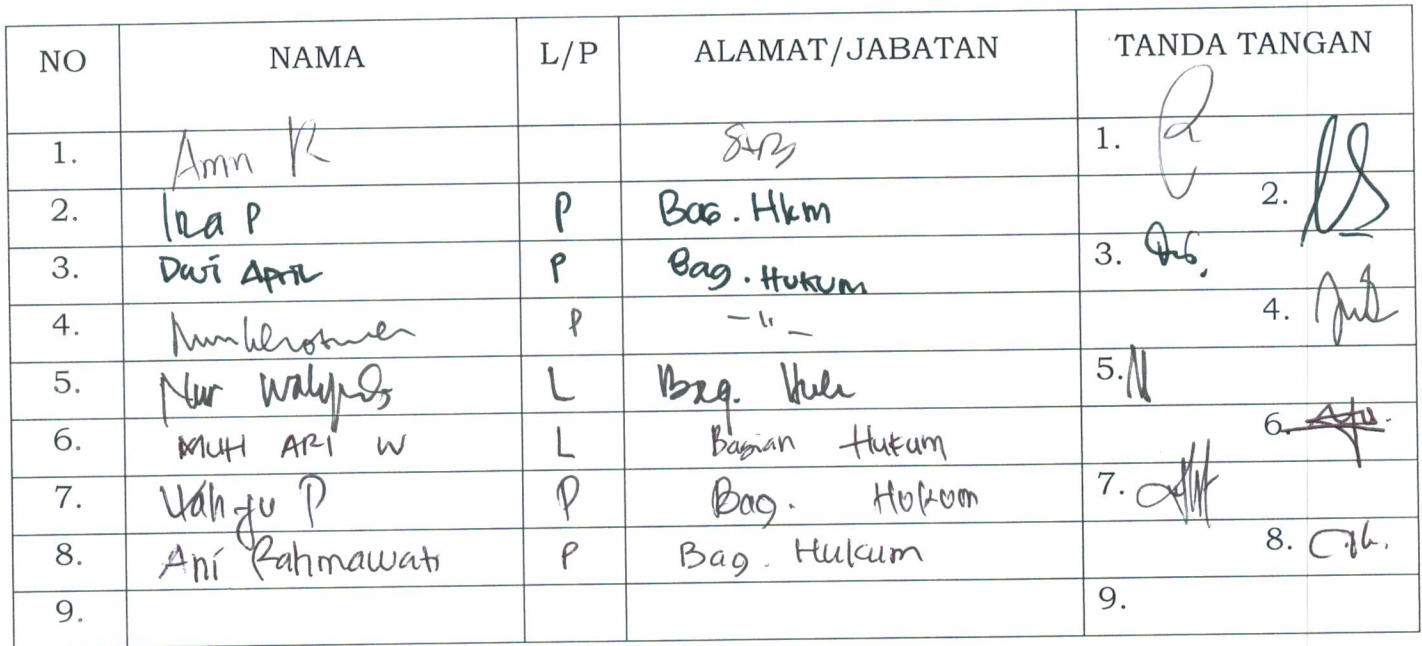 NO NAMA L/P ALAMAT/JABATAN TANDA TANGAN
1. Amn R 1.
2. Ira P P Bag. Hkm 2.
3. Dwi April P Bag. Hukum 3.
4. P -"- 4.
5. Nur L Bag. Huk 5.
6. MUH ARI W L Bagian Hukum 6.
7. Wahyu P P Bag. Hukum 7.
8. Ani Rahmawati P Bag. Hukum 8.
9. 9.